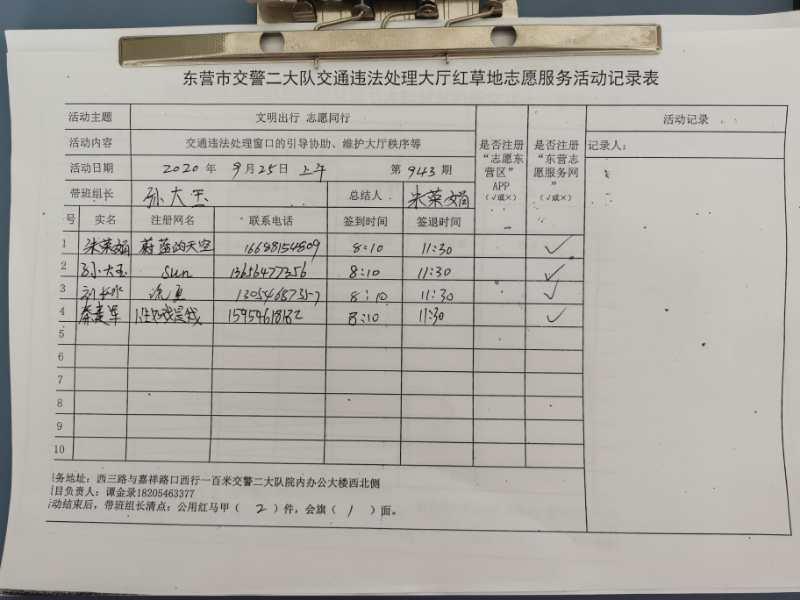 东营市交警二大队交通违法处理大厅红草地志愿服务活动记录表
活动主题 文明出行 志愿同行
活动内容 交通违法处理窗口的引导协助、维护大厅秩序等
活动日期 2020 年 9 月 25 日 上午 第 943 期
带班组长 孙大玉 总结人 朱荣娟
是否注册“志愿东营区”APP（√或×）
是否注册“东营志愿服务网”（√或×）
活动记录
记录人：
号 实名 注册网名 联系电话 签到时间 签退时间
1 朱荣娟 蔚蓝的天空 16688154809 8:10 11:30 √
2 孙大玉 sun 13656477356 8:10 11:30 √
3 8:10 11:30 √
4 15954618182 8:10 11:30 √
5
6
7
8
9
10
服务地址：西三路与嘉祥路口西行一百米交警二大队院内办公大楼西北侧
项目负责人：谭金录18205463377
活动结束后，带班组长清点：公用红马甲（ 2 ）件，会旗（ 1 ）面。